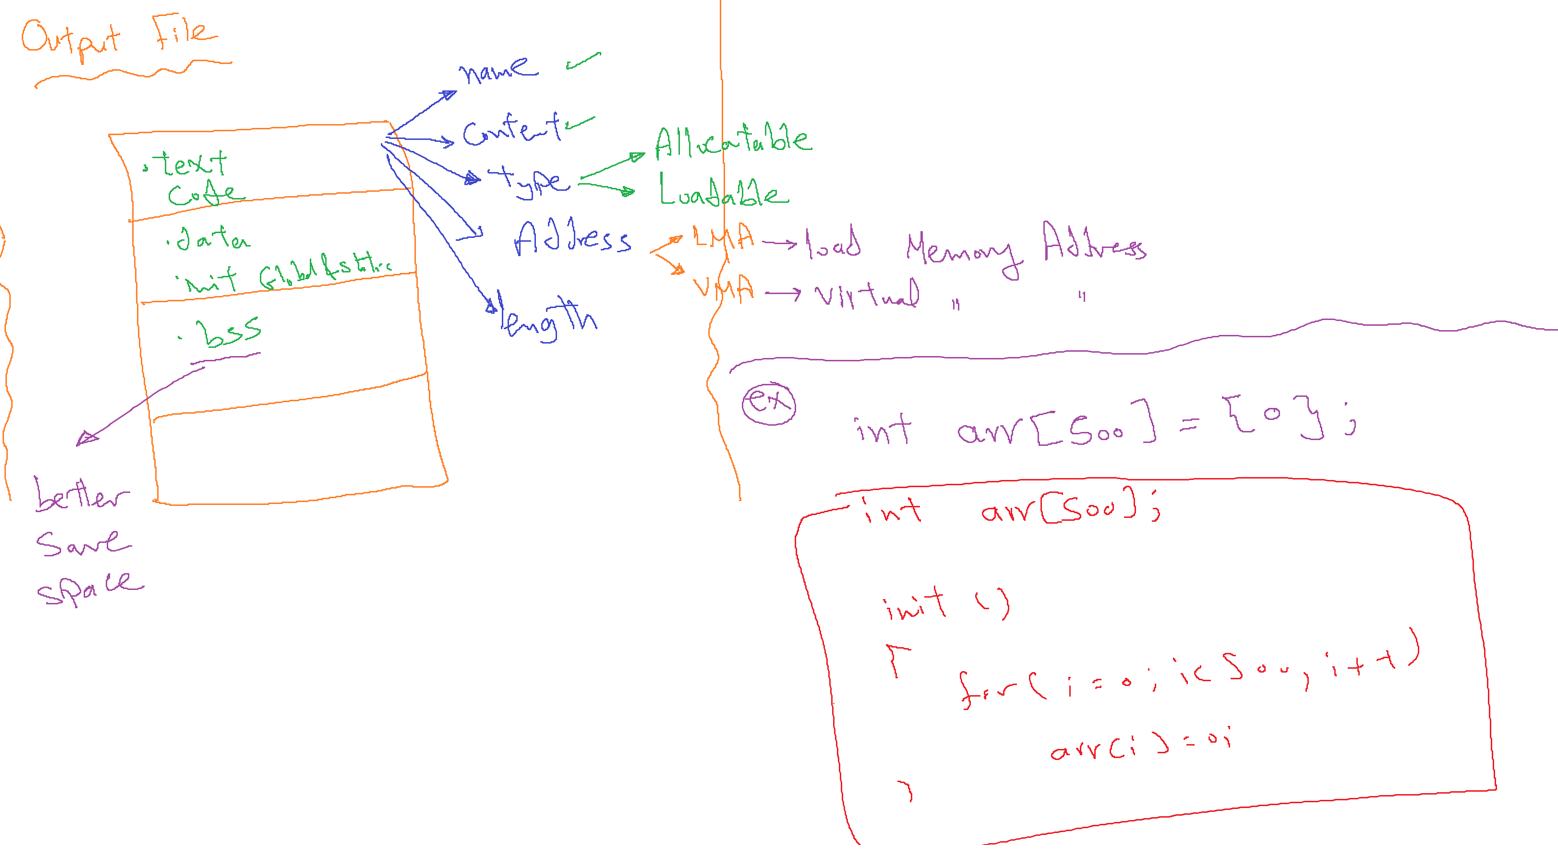 Output File
.text
Code
.data
init Global & static
.bss
better
save
space
name
Content
type
Address
length
Allocatable
Loadable
LMA → load Memory Address
VMA → Virtual " "
ex
int arr[500] = {0};
int arr[500];
init ()
{
for(i=0; i<500; i++)
arr(i)=0;
}